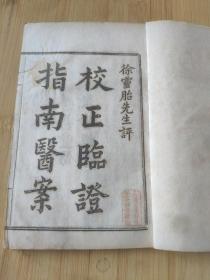 徐靈胎先生評
校正臨證
指南醫案